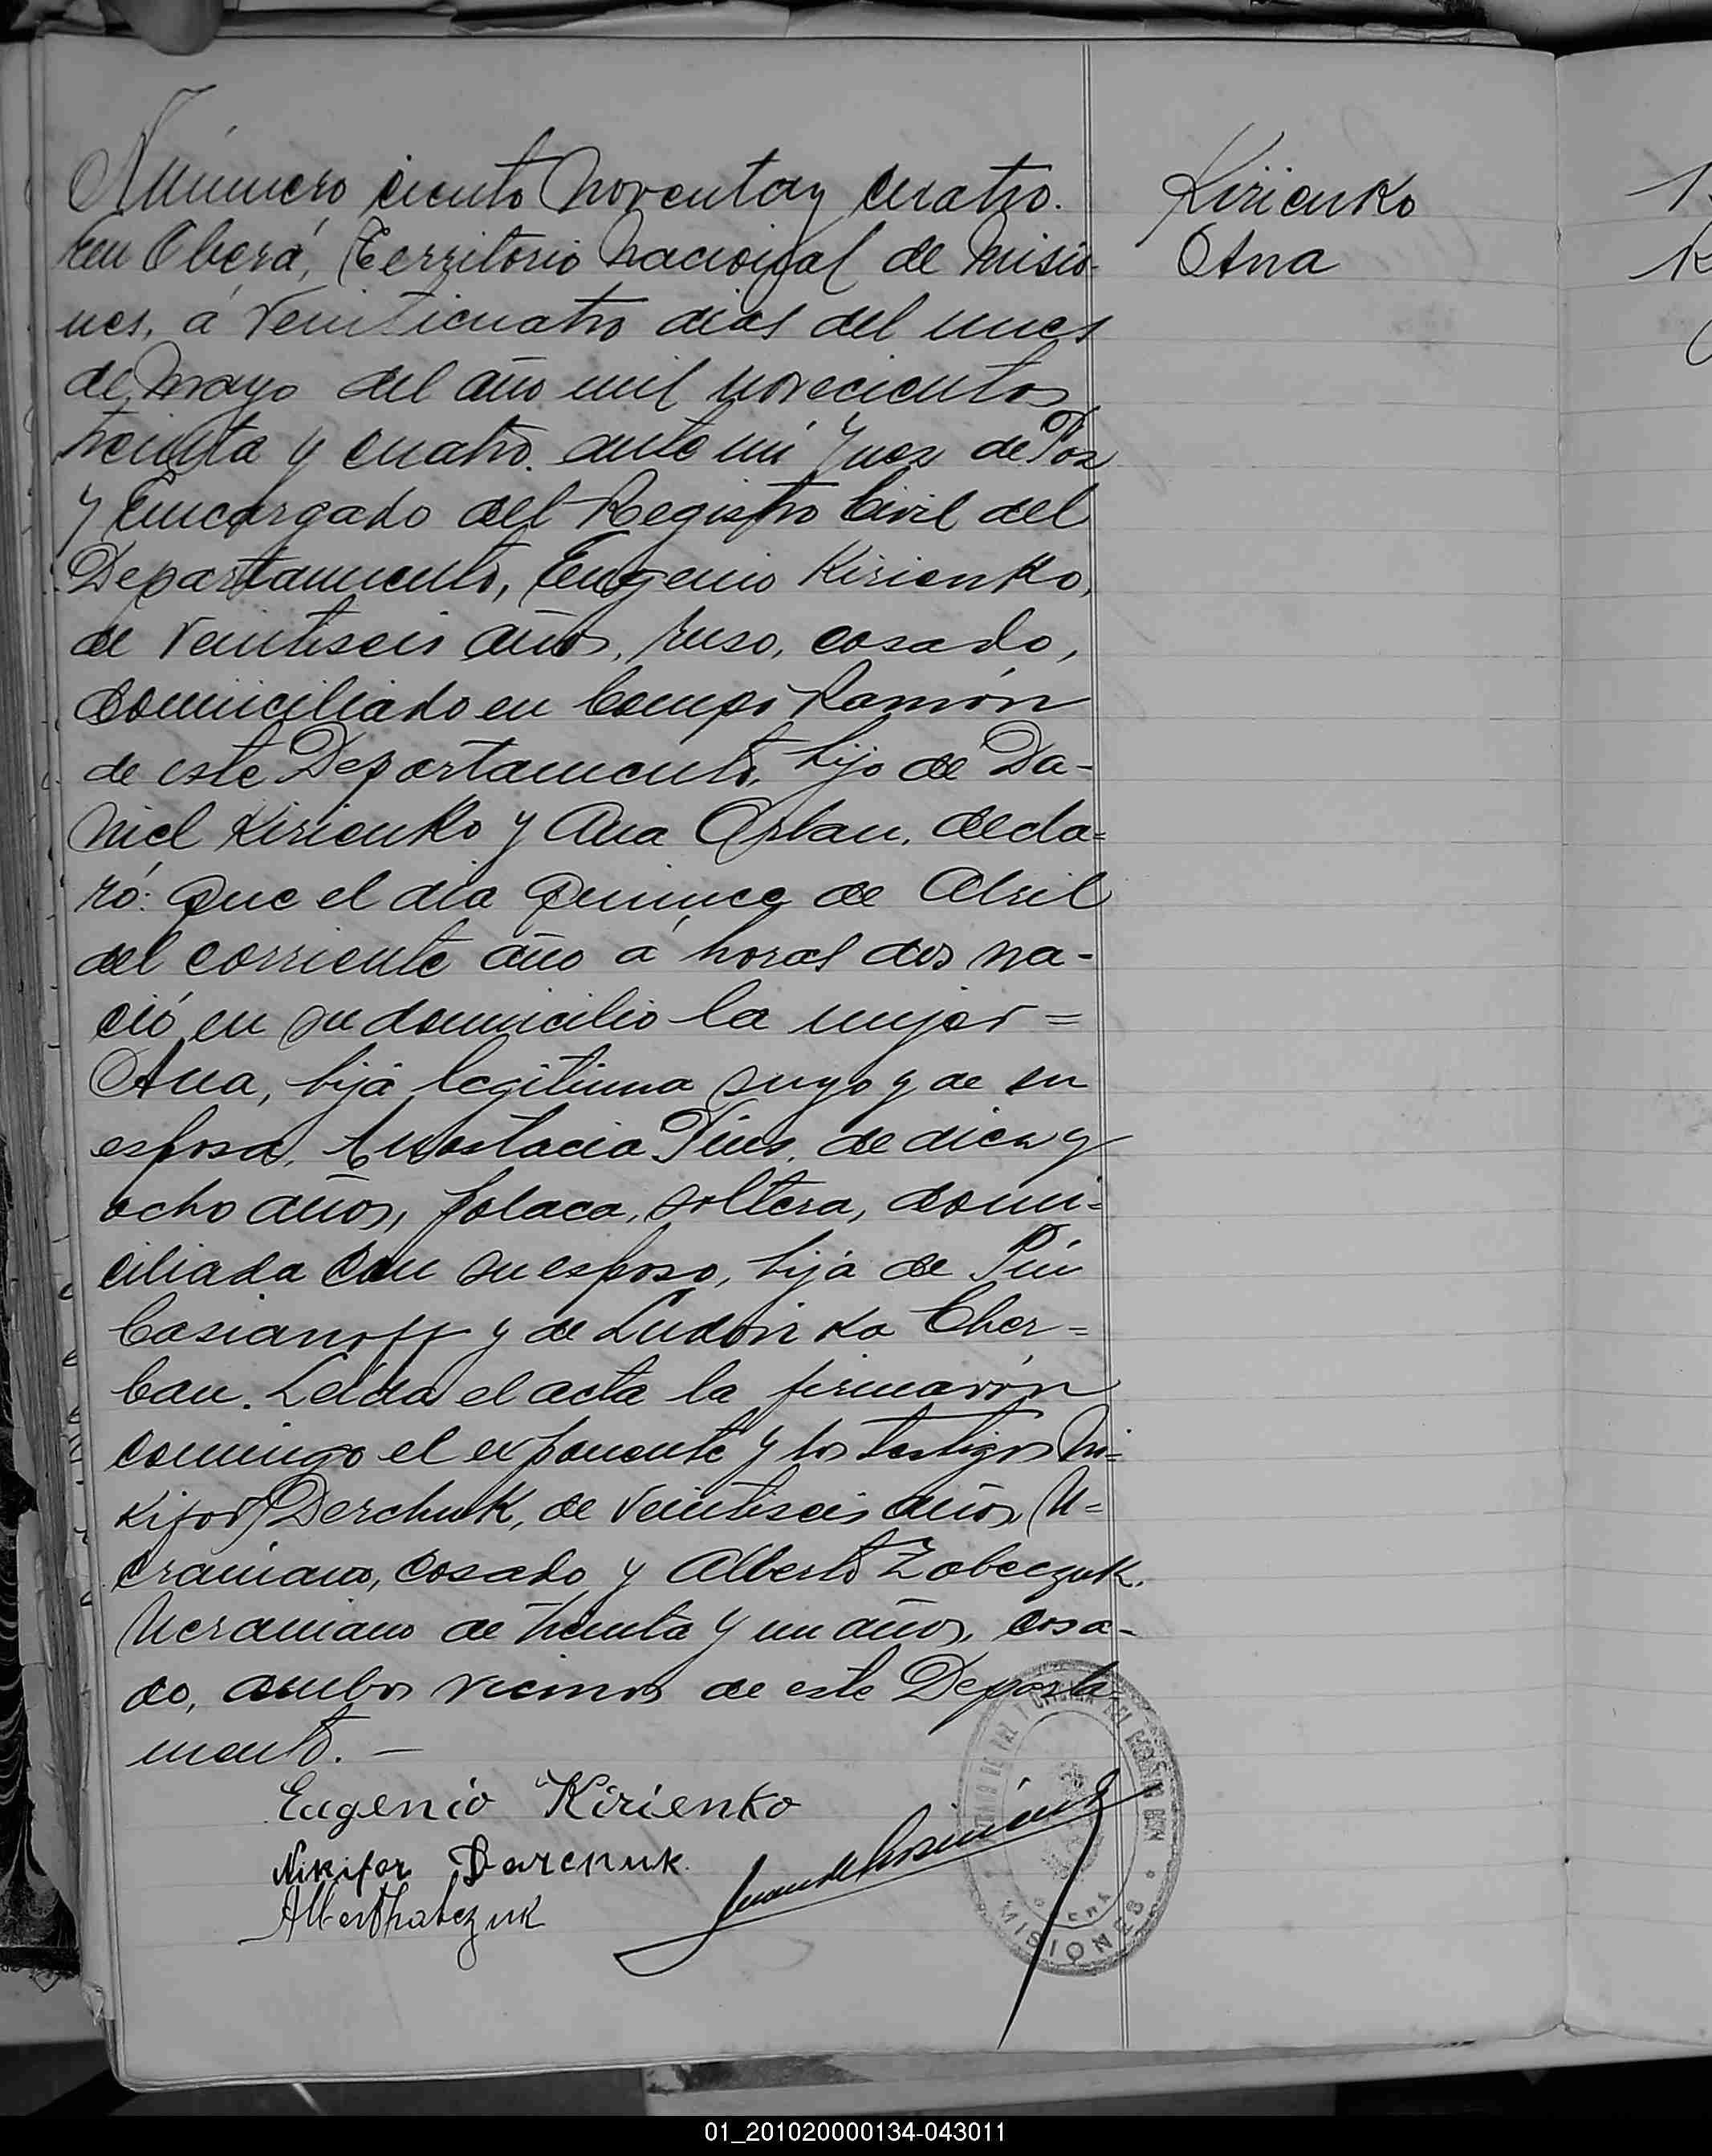 Número ciento noventa y cuatro.
En Oberá, Territorio Nacional de Misio-
nes, á veinticuatro dias del mes
de Mayo del año mil novecientos
treinta y cuatro. ante mí Juez de Paz
y Encargado del Registro Civil del
Departamento, Eugenio Kirienko,
de veintiseis años, ruso, casado,
domiciliado en Campo Ramón
de este Departamento, hijo de Da-
niel Kirienko y Ana Orban. decla=
ró: que el día quince de Abril
del corriente año á horas dos na-
ció en su domicilio la mujer =
Ana, hija legitima suya y de su
esposa, Anastacia Pius, de diez y
ocho años, polaca, soltera, domi=
ciliada con su esposo, hija de Piu
Casianoff y de Ludovika Cher=
ban. Leída el acta la firmarón
conmigo el exponente y los testigos Ni=
kifor Derchuk, de veintiseis años, U=
craniano, casado y Alberto Zabeczuk.
Ucraniano de treinta y un años, casa-
do, ambos vecinos de este Departa-
mento. —
Eugenio Kirienko
Nikifor Darchuk.
MISIONES
Kirienko
Ana
01_201020000134-043011